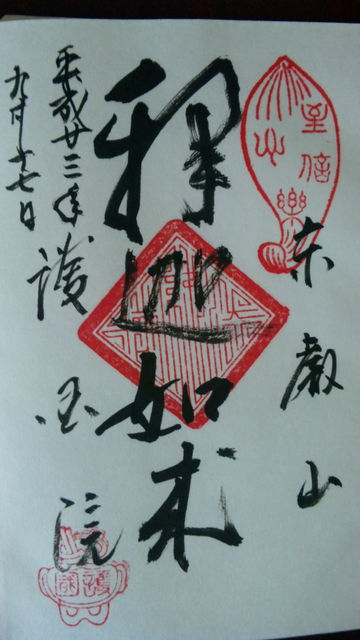 東叡山
釋迦如来
平成廿三年
九月十七日
護国院
護國